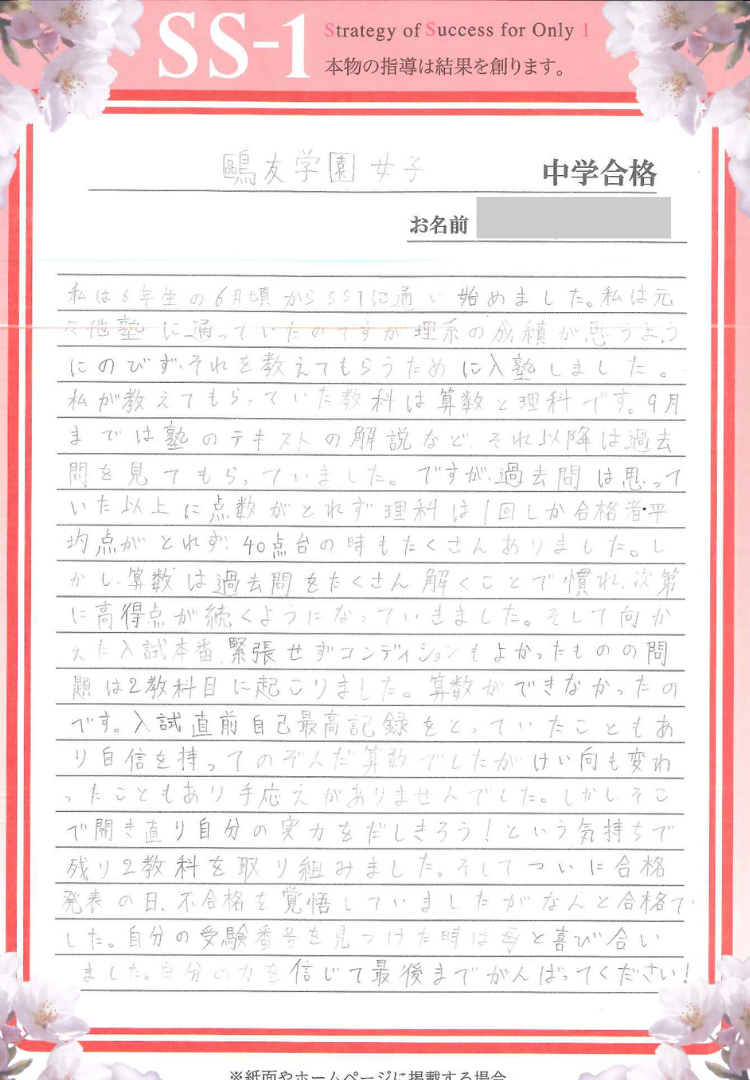 SS-1
Strategy of Success for Only 1
本物の指導は結果を創ります。
鷗友学園女子 中学合格
お名前
私は6年生の6月頃からSS1に通い始めました。私は元
々他塾に通っていたのですが理系の成積が、思うよう
にのびず、それを教えてもらうために入塾しました。
私が教えてもらっていた教科は算数と理科です。9月
までは塾のテキストの解説など、それ以降は過去
問を見てもらっていました。ですが、過去問は思って
いた以上に点数がとれず理科は1回しか合格者平
均点がとれず、40点台の時もたくさんありました。し
かし、算数は過去問をたくさん解くことで慣れ、次第
に高得点が続くようになっていきました。そして向か
えた入試本番、緊張せずコンディションもよかったものの問
題は2教科目に起こりました。算数ができなかったの
です。入試直前自己最高記録をとっていたこともあ
り自信を持ってのぞんだ算数でしたがけい向も変わ
ったこともあり手応えがありませんでした。しかしそこ
で開き直り自分の実力をだしきろう!という気持ちで
残り2教科を取り組みました。そしてついに合格
発表の日、不合格を覚悟していましたがなんと合格で
した。自分の受験番号を見つけた時は母と喜び合い
ました。自分の力を信じて最後までがんばってください!
※紙面やホームページに掲載する場合